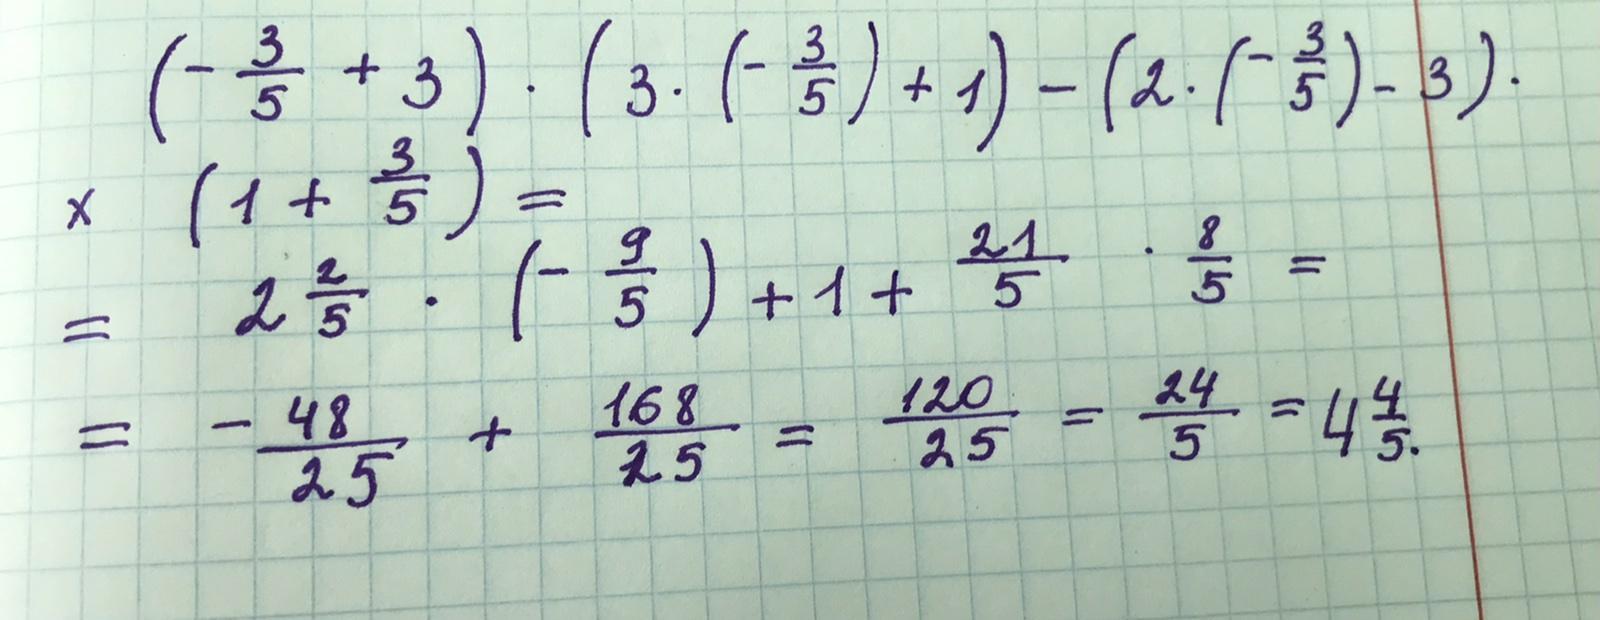 (- 3/5 + 3) · (3 · (- 3/5) + 1) - (2 · (- 3/5) - 3) ·
x (1 + 3/5) =
= 2 2/5 · (- 9/5) + 1 + 21/5 · 8/5 =
= - 48/25 + 168/25 = 120/25 = 24/5 = 4 4/5.